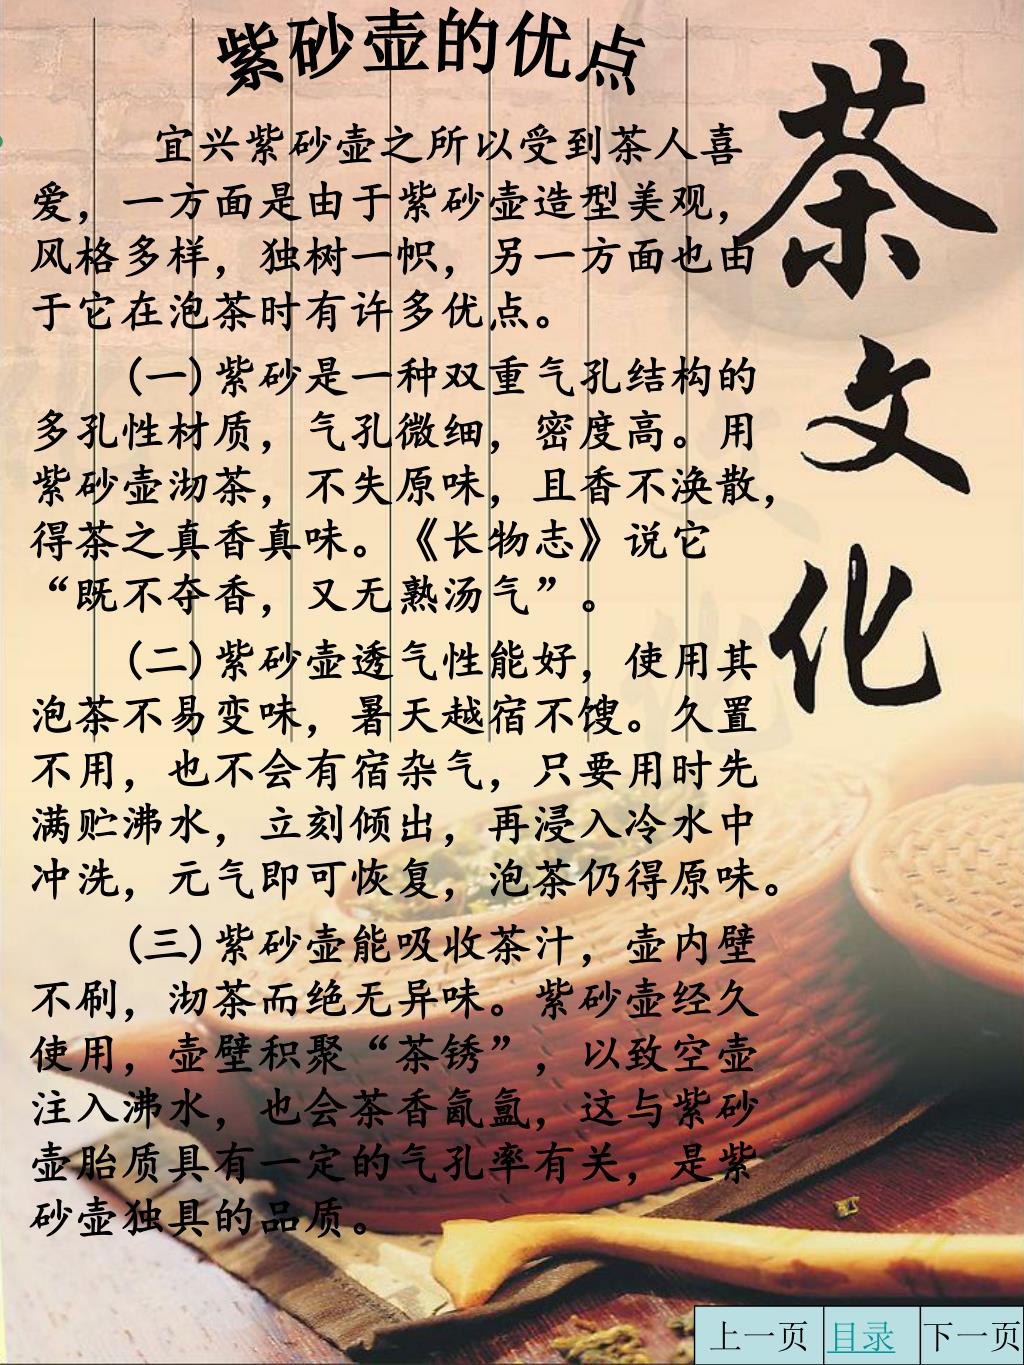 紫砂壶的优点
宜兴紫砂壶之所以受到茶人喜
爱，一方面是由于紫砂壶造型美观，
风格多样，独树一帜，另一方面也由
于它在泡茶时有许多优点。
(一)紫砂是一种双重气孔结构的
多孔性材质，气孔微细，密度高。用
紫砂壶沏茶，不失原味，且香不涣散，
得茶之真香真味。《长物志》说它
“既不夺香，又无熟汤气”。
(二)紫砂壶透气性能好，使用其
泡茶不易变味，暑天越宿不馊。久置
不用，也不会有宿杂气，只要用时先
满贮沸水，立刻倾出，再浸入冷水中
冲洗，元气即可恢复，泡茶仍得原味。
(三)紫砂壶能吸收茶汁，壶内壁
不刷，沏茶而绝无异味。紫砂壶经久
使用，壶壁积聚“茶锈”，以致空壶
注入沸水，也会茶香氤氲，这与紫砂
壶胎质具有一定的气孔率有关，是紫
砂壶独具的品质。
茶
文
化
上一页 目录 下一页